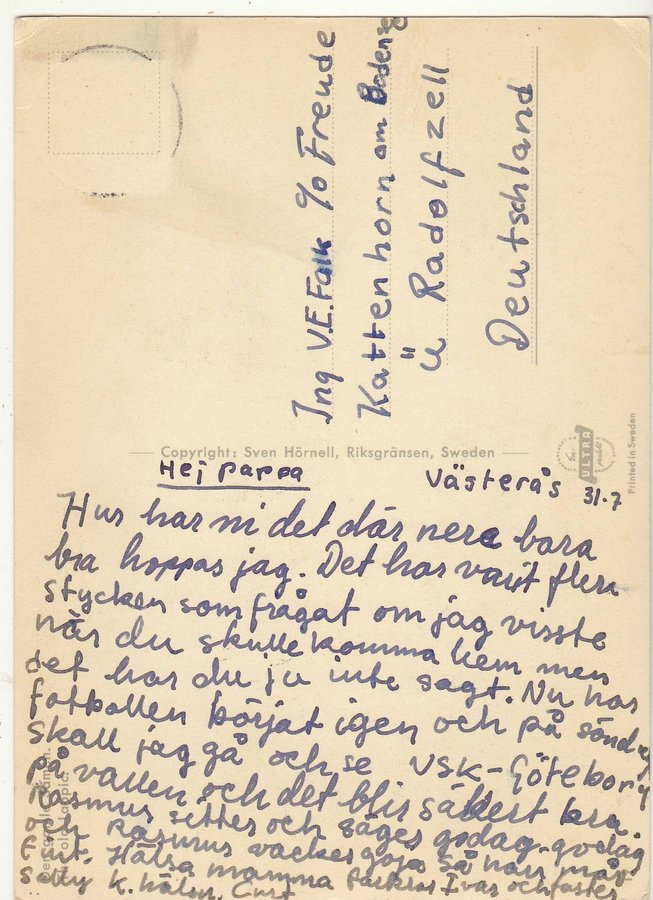 Ing V.E. Falk c/o Freude
Kattenhorn am Bodensee
Ü Radolfzell
Deutschland
Copyright: Sven Hörnell, Riksgränsen, Sweden
ULTRA
Printed in Sweden
Hej pappa
Västerås 31.7
Hur har ni det där nere bara
bra hoppas jag. Det har varit flera
stycken som frågat om jag visste
när du skulle komma hem men
det har du ju inte sagt. Nu har
fotbollen börjat igen och på söndag
skall jag gå och se VSK-Göteborg
på vallen och det blir säkert bra.
Rasmus sitter och säger godag-godag
och Rasmus vacker goja så han mår
fint. Hälsa mamma farbror Ivar och faster
Sally K. hälsn. Curt